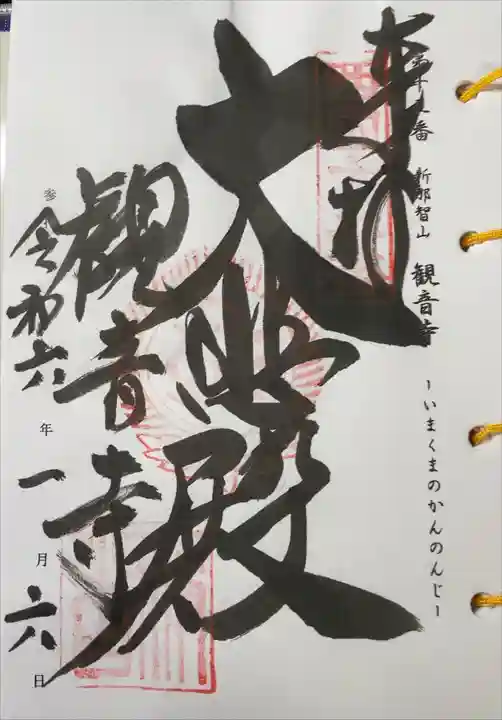 奉拝
第十五番 新那智山 観音寺
-いまくまのかんのんじ-
大悲殿
観音寺
参
令和六年一月六日